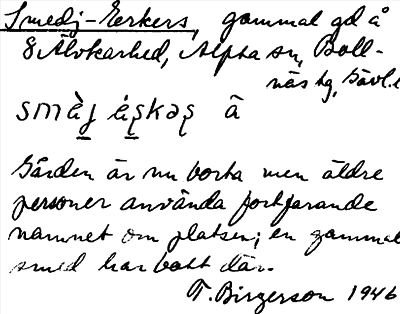 Smedj-Eerkers, gammal gd å
8 Älvkarhed, Alfta sn, Boll-
näs tg, Gävl.l
smàj ə́skəs å
Gården är nu borta men äldre
personer använda fortfarande
namnet om platsen; en gammal
smed har bott där.
T. Birgerson 1946